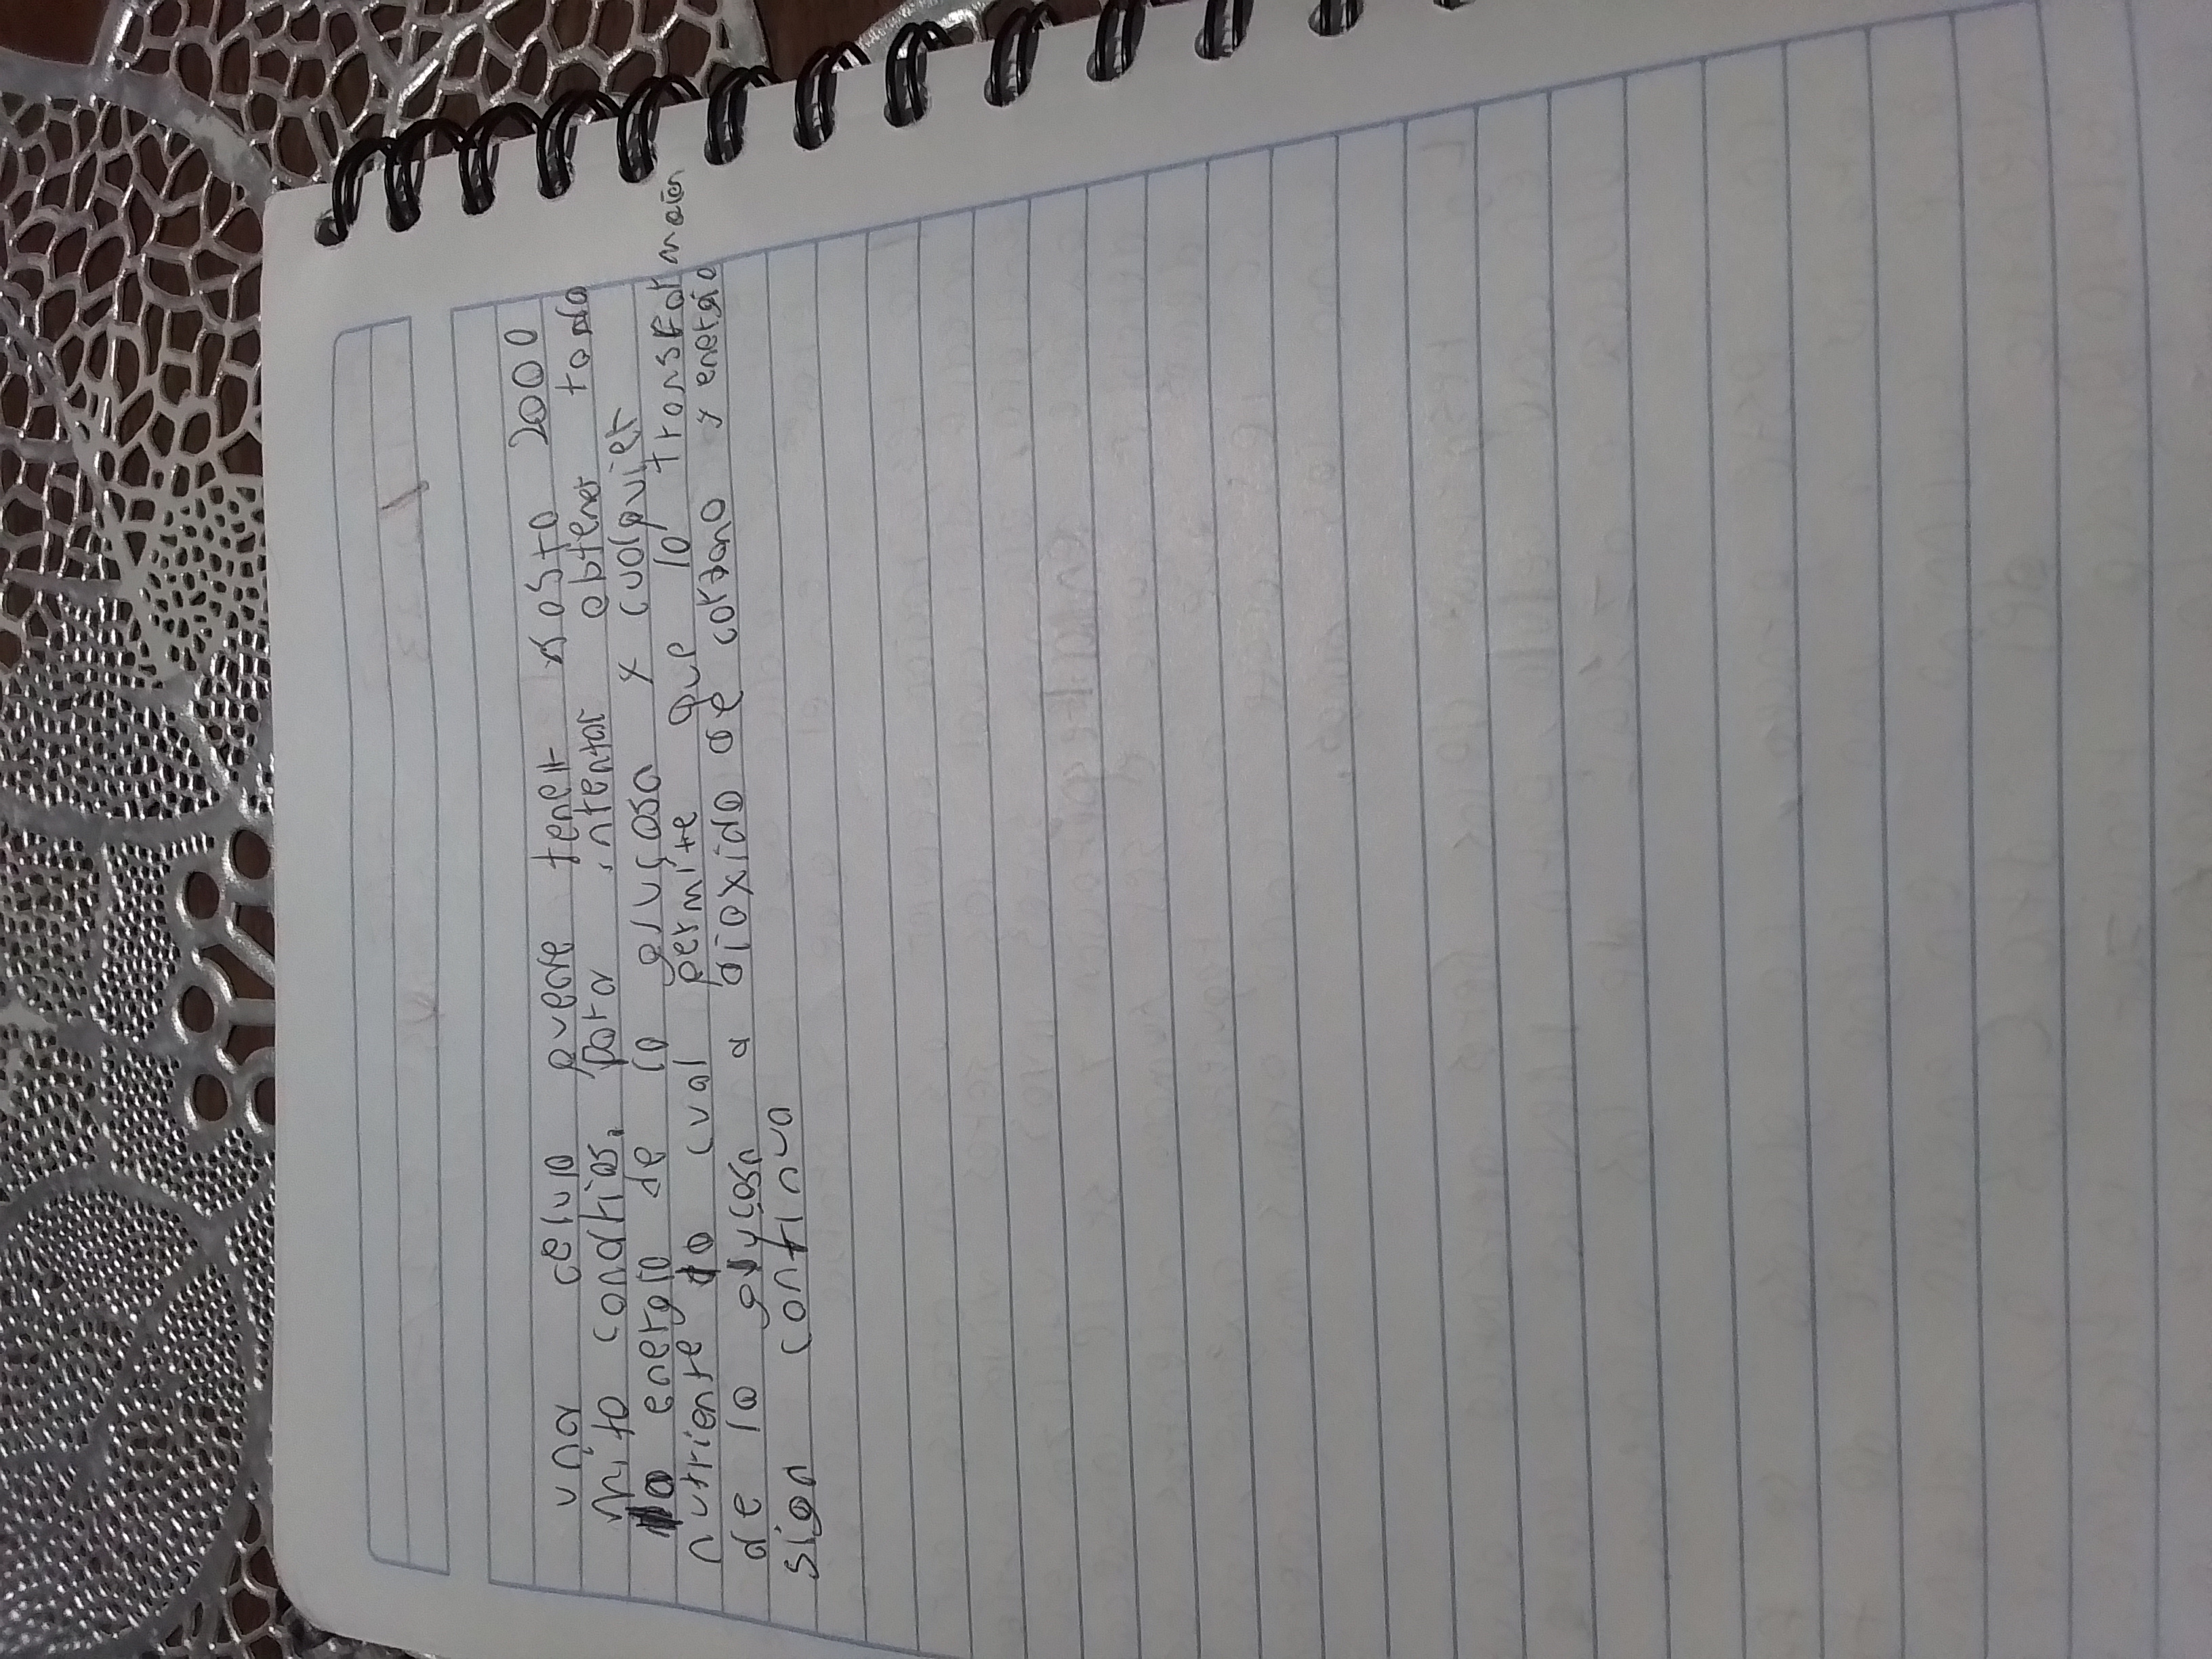 una celula puede tener hasta 2000
mito condrias, para intentar obtener toda
la energia de la glucosa y cualquier
nutriente lo cual permite que la transformaión
de la glucosa a dioxido de corbano y energia
siga continua